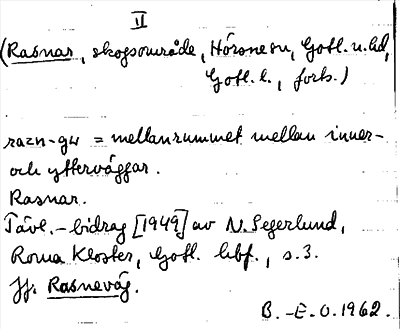 II
(Rasnar, skogsområde, Hörsne sn, Gotl. n. hd,
Gotl. l., forts.)
razn-gu = mellanrummet mellan inner-
och ytterväggar.
Rasnar.
Tävl.-bidrag [1949] av N. Segerlund,
Roma Kloster, Gotl. hbf., s. 3.
Jf. Rasneväg.
B.-E. O. 1962.